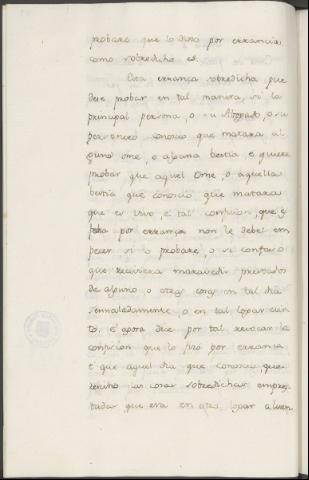 probare que lo dixo por errancia
como sobredicho es.
Esta erranza sobredicha que
deve probar en tal manera, si la
principal persona, o su Abogado, o su
personero conosció que matara al
guno ome, o alguna bestia e quiere
probar que aquel ome, o aquella
bestia que conosció que matara
que es vivo, e tal confesion, que es
fecha por erranza non le debe em
pecer si lo probare, o si confesó
que recibiera maravedis prestados
de alguno, o otras cosas en tal dia
sennaladamente, o en tal logar cier
to, e agora dice por tal revocar la
confesion que lo fizo por erranza
e que aquel dia que conosció, que
rescibió las cosas sobredichas empres
tadas, que era en otro logar a luen